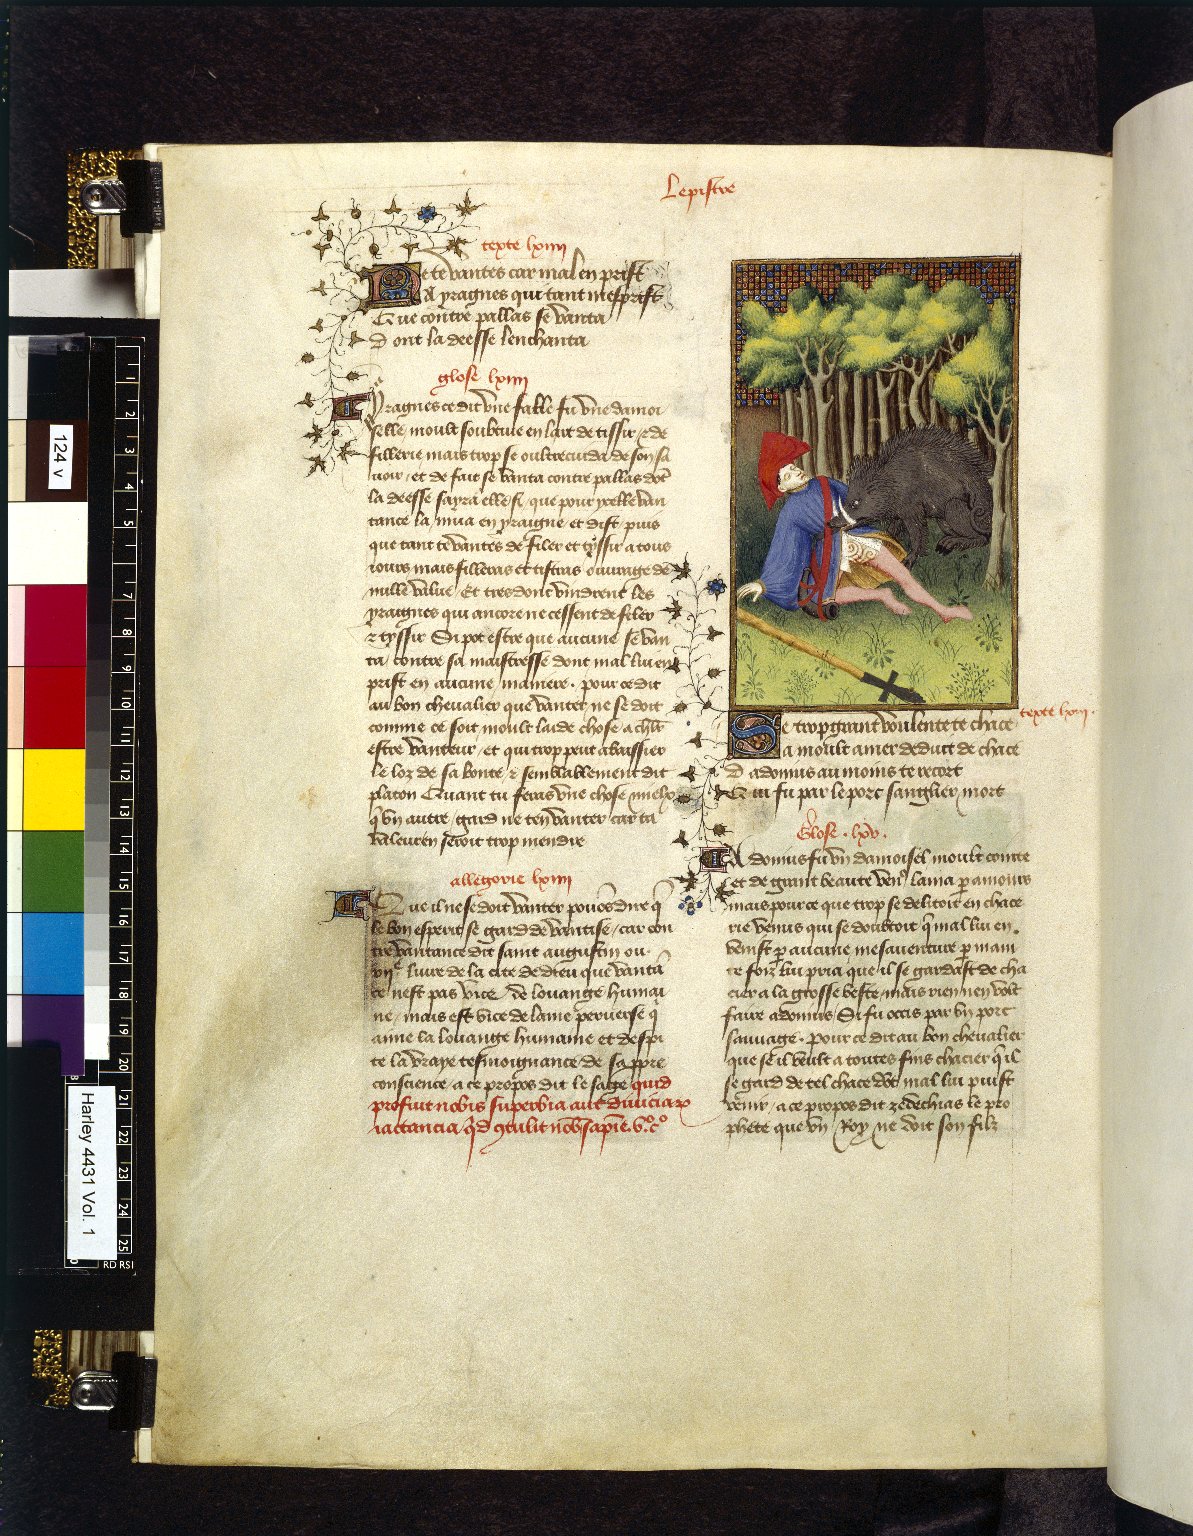 Lepistre
texte lxiiii
Ne te vantes car mal en prist
A yragnes qui tant mesprist
Que contre pallas se vanta
Dont la deesse lenchanta
glose lxiiii
Yragnes ce dit vne fable fu vne damoi
selle moult soubtiue en lart de tissir et de
fillerie mais trop se oultrecuida de son sa
uoir / et de fait se vanta contre pallas dōt
la deesse sayra a elle si que pour ycelle van
tance la mua en yraigne et dist / puis
que tant te vantes de filer et tyssir a tous
iours mais filleras et tistras ouurage de
nulle value / Et tres dont vindrent les
yraignes qui ancore ne cessent de filer
et tyssir Si pot estre que aucune se van
ta / contre sa maistresse dont mal lui en
prist en aucune maniere . pour ce dit
au bon cheualier que vanter ne se doit
comme ce soit moult laide chose a chlr
estre vanteur / et qui trop peut abaissier
le loz de sa bonte et semblablement dit
platon Quant tu feras vne chose mielx
q̄ vn autre / gard ne ten vanter car ta
valeur en seroit trop mendre
allegorie lxiiii
Que il ne se doit vanter pouōs dire q̄
le bon esperit se gard de vantise / car con
tre vantance dit saint augustin ou
xiie liure de la cite de dieu que vantā
ce nest pas vice de louange humai
ne / mais est vice de lame peruerse q̄
aime la louange humaine et despi
te la vraye tesmoignance de sa ppre
conscience a ce propos dit le saige quid
profuit nobis superbia aut diuiciarȝ
iactancia / q̄d ꝯtulit nob̄ sapīe. v.o c.o
texte lxv .
Se trop grant voulente te chace
a moult amer deduit de chace
Dadonius au moins te recort
Qui fu par le porc sanglier mort
Glose . lxv .
Adonius fu vn damoisel moult cointe
et de grant beaute ven9 lama p̄ amours
mais pource que trop se delitoit en chace
rie venus qui se doubtoit q̄ mal lui en
venist p̄ aucune mesauenture p̄ main
te foiz lui pria que il se gardast de cha
cier a la grosse beste / mais rien nen volt
faire adonius Si fu occis par vn porc
sauuage . pour ce dit au bon cheualier
que se il veult a toutes fins chacier q̄ il
se gard de tel chace dōt mal lui puist
venir / a ce propos dit zedechias le pro
phete que vn Roy ne doit son filz
124 v
Harley 4431 Vol. 1
1
2
3
4
5
6
7
8
9
10
11
12
13
14
15
16
17
18
19
20
21
22
23
24
25
RD RSI